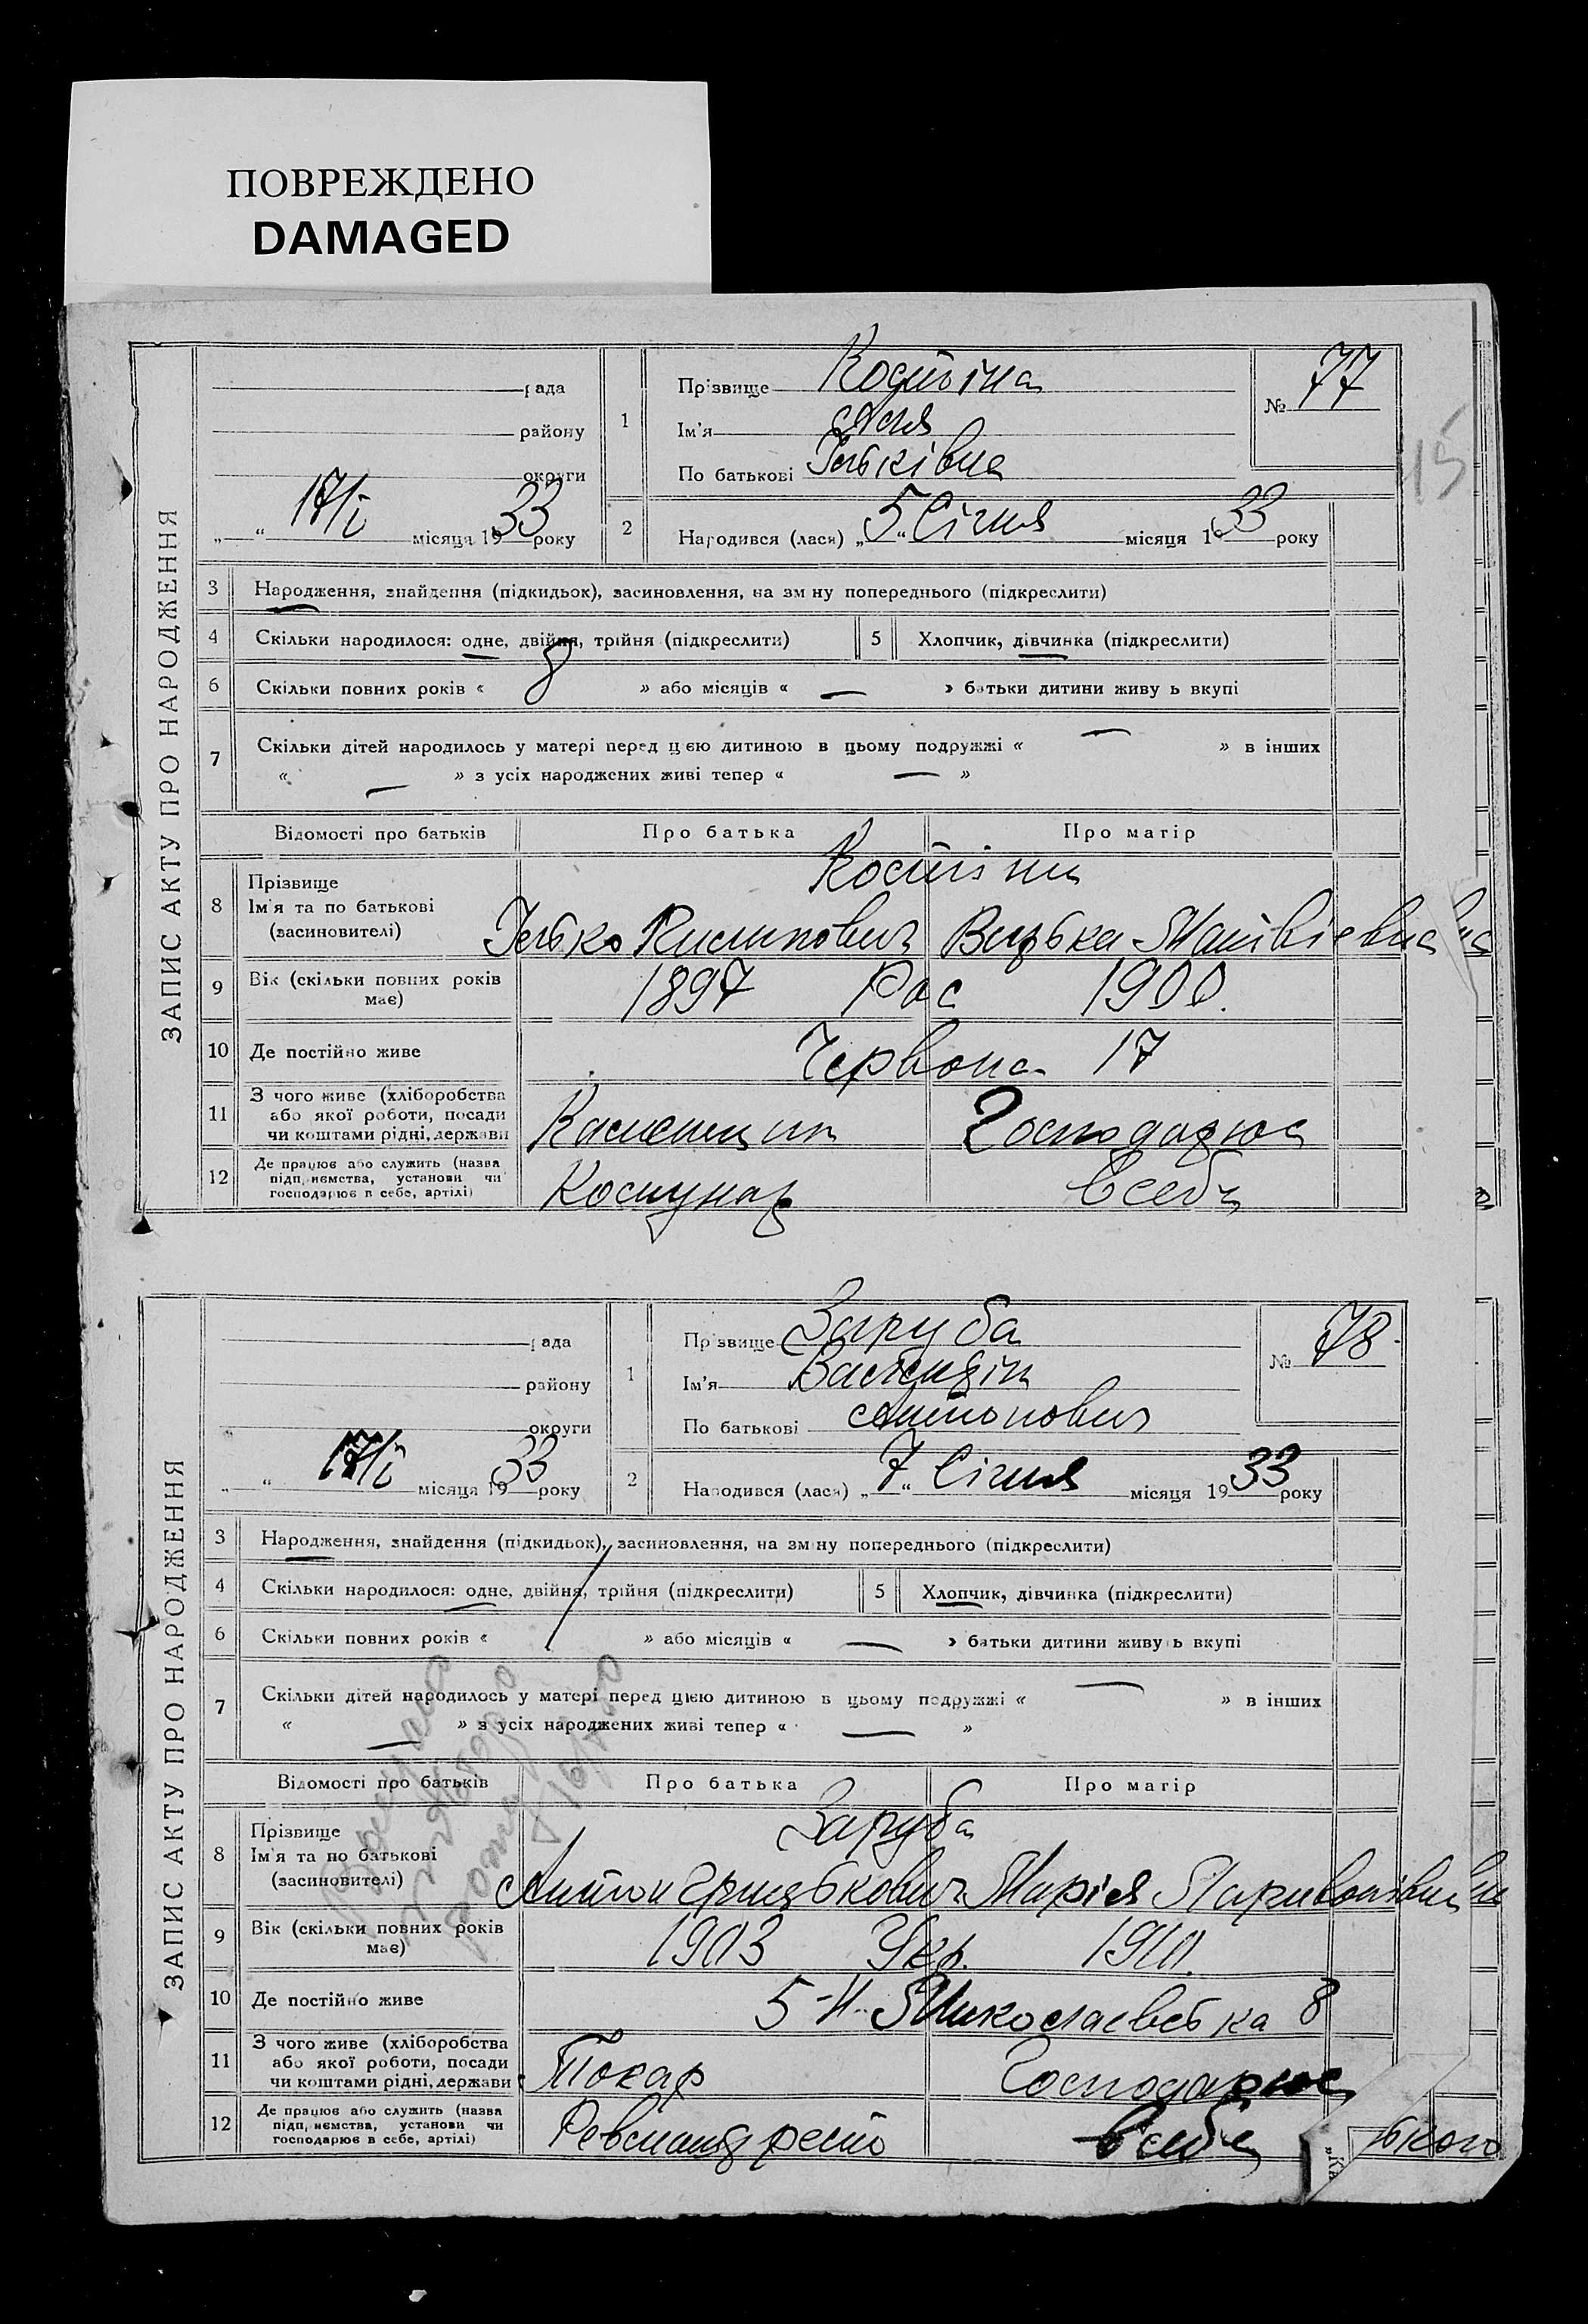 ПОВРЕЖДЕНО
DAMAGED
ЗАПИС АКТУ ПРО НАРОДЖЕННЯ
рада
району
округи
„ “ 17/I місяця 1933 року
1
Прізвище Костіна
Ім'я Ася
По батькові Ільківна
№ 77
15
2
Народився (лася) „5“ Січня місяця 1933 року
3 Народження, знайдення (підкидьок), засиновлення, на зміну попереднього (підкреслити)
4 Скільки народилося: одне, двійня, трійня (підкреслити) 5 Хлопчик, дівчинка (підкреслити)
6 Скільки повних років « 8 » або місяців « — » батьки дитини живуть вкупі
7 Скільки дітей народилось у матері перед цією дитиною в цьому подружжі « — » в інших
« — » з усіх народжених живі тепер « — »
Відомості про батьків Про батька Про матір
8 Прізвище
Ім'я та по батькові
(засиновителі)
Костіни
Ілько
9 Вік (скільки повних років має) 1897 Рос 1900.
10 Де постійно живе Червона 17
11 З чого живе (хліборобства
або якої роботи, посади
чи коштами рідні, держави
Господарює
12 Де працює або служить (назва
підприємства, установи чи
господарює в себе, артілі)
в себе
ЗАПИС АКТУ ПРО НАРОДЖЕННЯ
рада
району
округи
„ “ 17/I місяця 1933 року
1
Прізвище Заруба
Ім'я Валендін
По батькові Антонович
№ 78
2
Народився (лася) „7“ Січня місяця 1933 року
3 Народження, знайдення (підкидьок), засиновлення, на зміну попереднього (підкреслити)
4 Скільки народилося: одне, двійня, трійня (підкреслити) 5 Хлопчик, дівчинка (підкреслити)
6 Скільки повних років « / » або місяців « — » батьки дитини живуть вкупі
7 Скільки дітей народилось у матері перед цією дитиною в цьому подружжі « — » в інших
« — » з усіх народжених живі тепер « — »
Відомості про батьків Про батька Про матір
8 Прізвище
Ім'я та по батькові
(засиновителі)
Заруба
Антон Грицькович Марія
9 Вік (скільки повних років має) 1903 Укр. 1910.
10 Де постійно живе 5-Н. Миколаєвська 8
11 З чого живе (хліборобства
або якої роботи, посади
чи коштами рідні, держави
Токар Господарює
12 Де працює або служить (назва
підприємства, установи чи
господарює в себе, артілі)
в себе